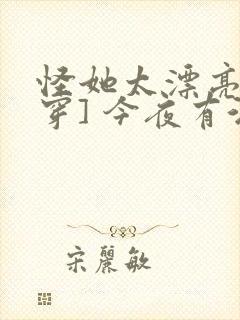 怪她太漂亮
穿]今夜有
宋丽敏